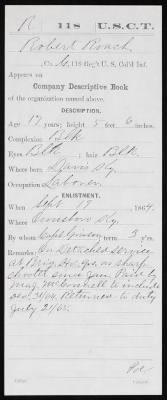 R | 118 | U.S.C.T.
Robert Roach
Co. G, 118 Reg't U. S. Col'd Inf.
Appears on
Company Descriptive Book
of the organization named above.
DESCRIPTION.
Age 17 years; height 5 feet 6 inches.
Complexion Blk
Eyes Blk ; hair Blk
Where born Davis Ky.
Occupation Laborer
ENLISTMENT.
When Sept 19 , 1864.
Where Owensboro Ky.
By whom Capt Grissom ; term 3 y'rs.
Remarks: On detached service
at Brig. Hd. Qrs. as sharp
shooter since Jan Paid by
Maj. to include
Dec 31/64. Returned to duty
July 21/65.